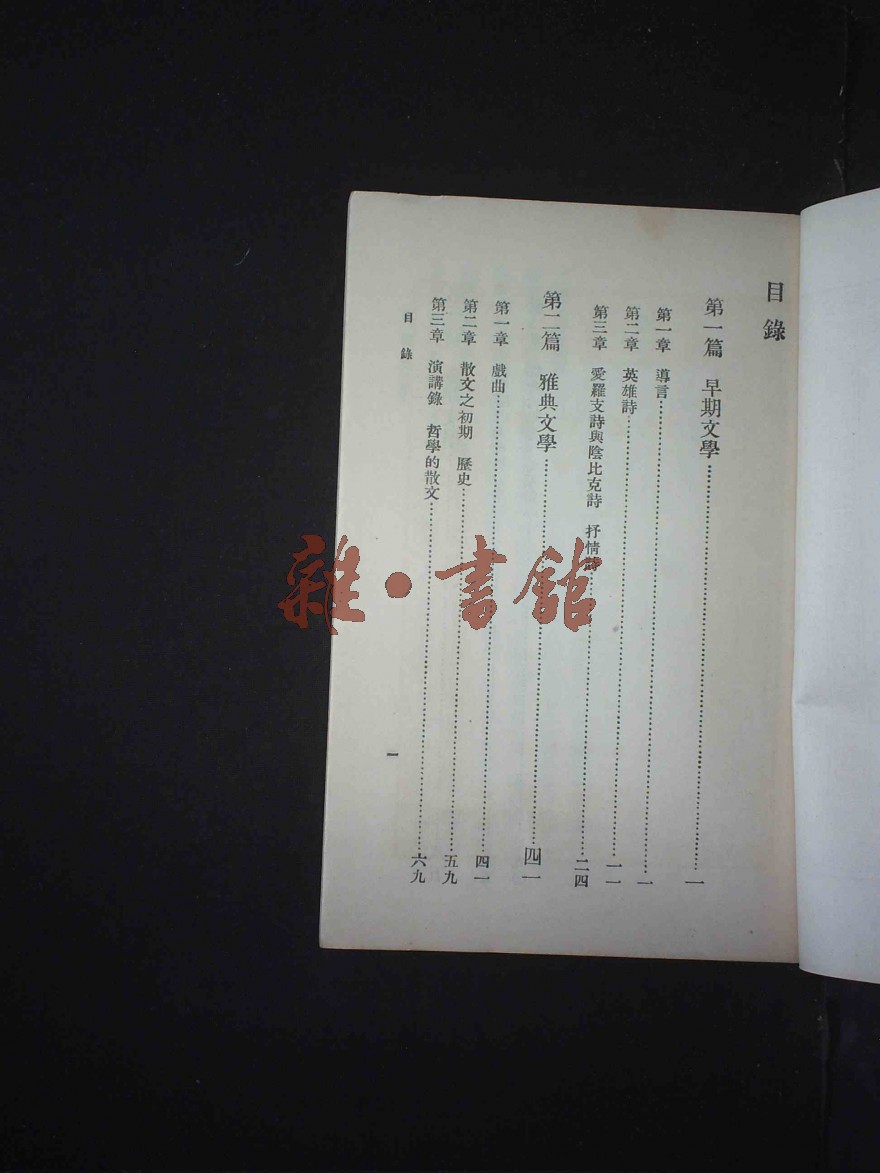 目錄
第一篇 早期文學⋯⋯一
第一章 導言⋯⋯一
第二章 英雄詩⋯⋯一一
第三章 愛羅支詩與陰比克詩 抒情詩⋯⋯二四
第二篇 雅典文學⋯⋯四一
第一章 戲曲⋯⋯四一
第二章 散文之初期 歷史⋯⋯五九
第三章 演講錄 哲學的散文⋯⋯六九
目錄
一
雜·書館